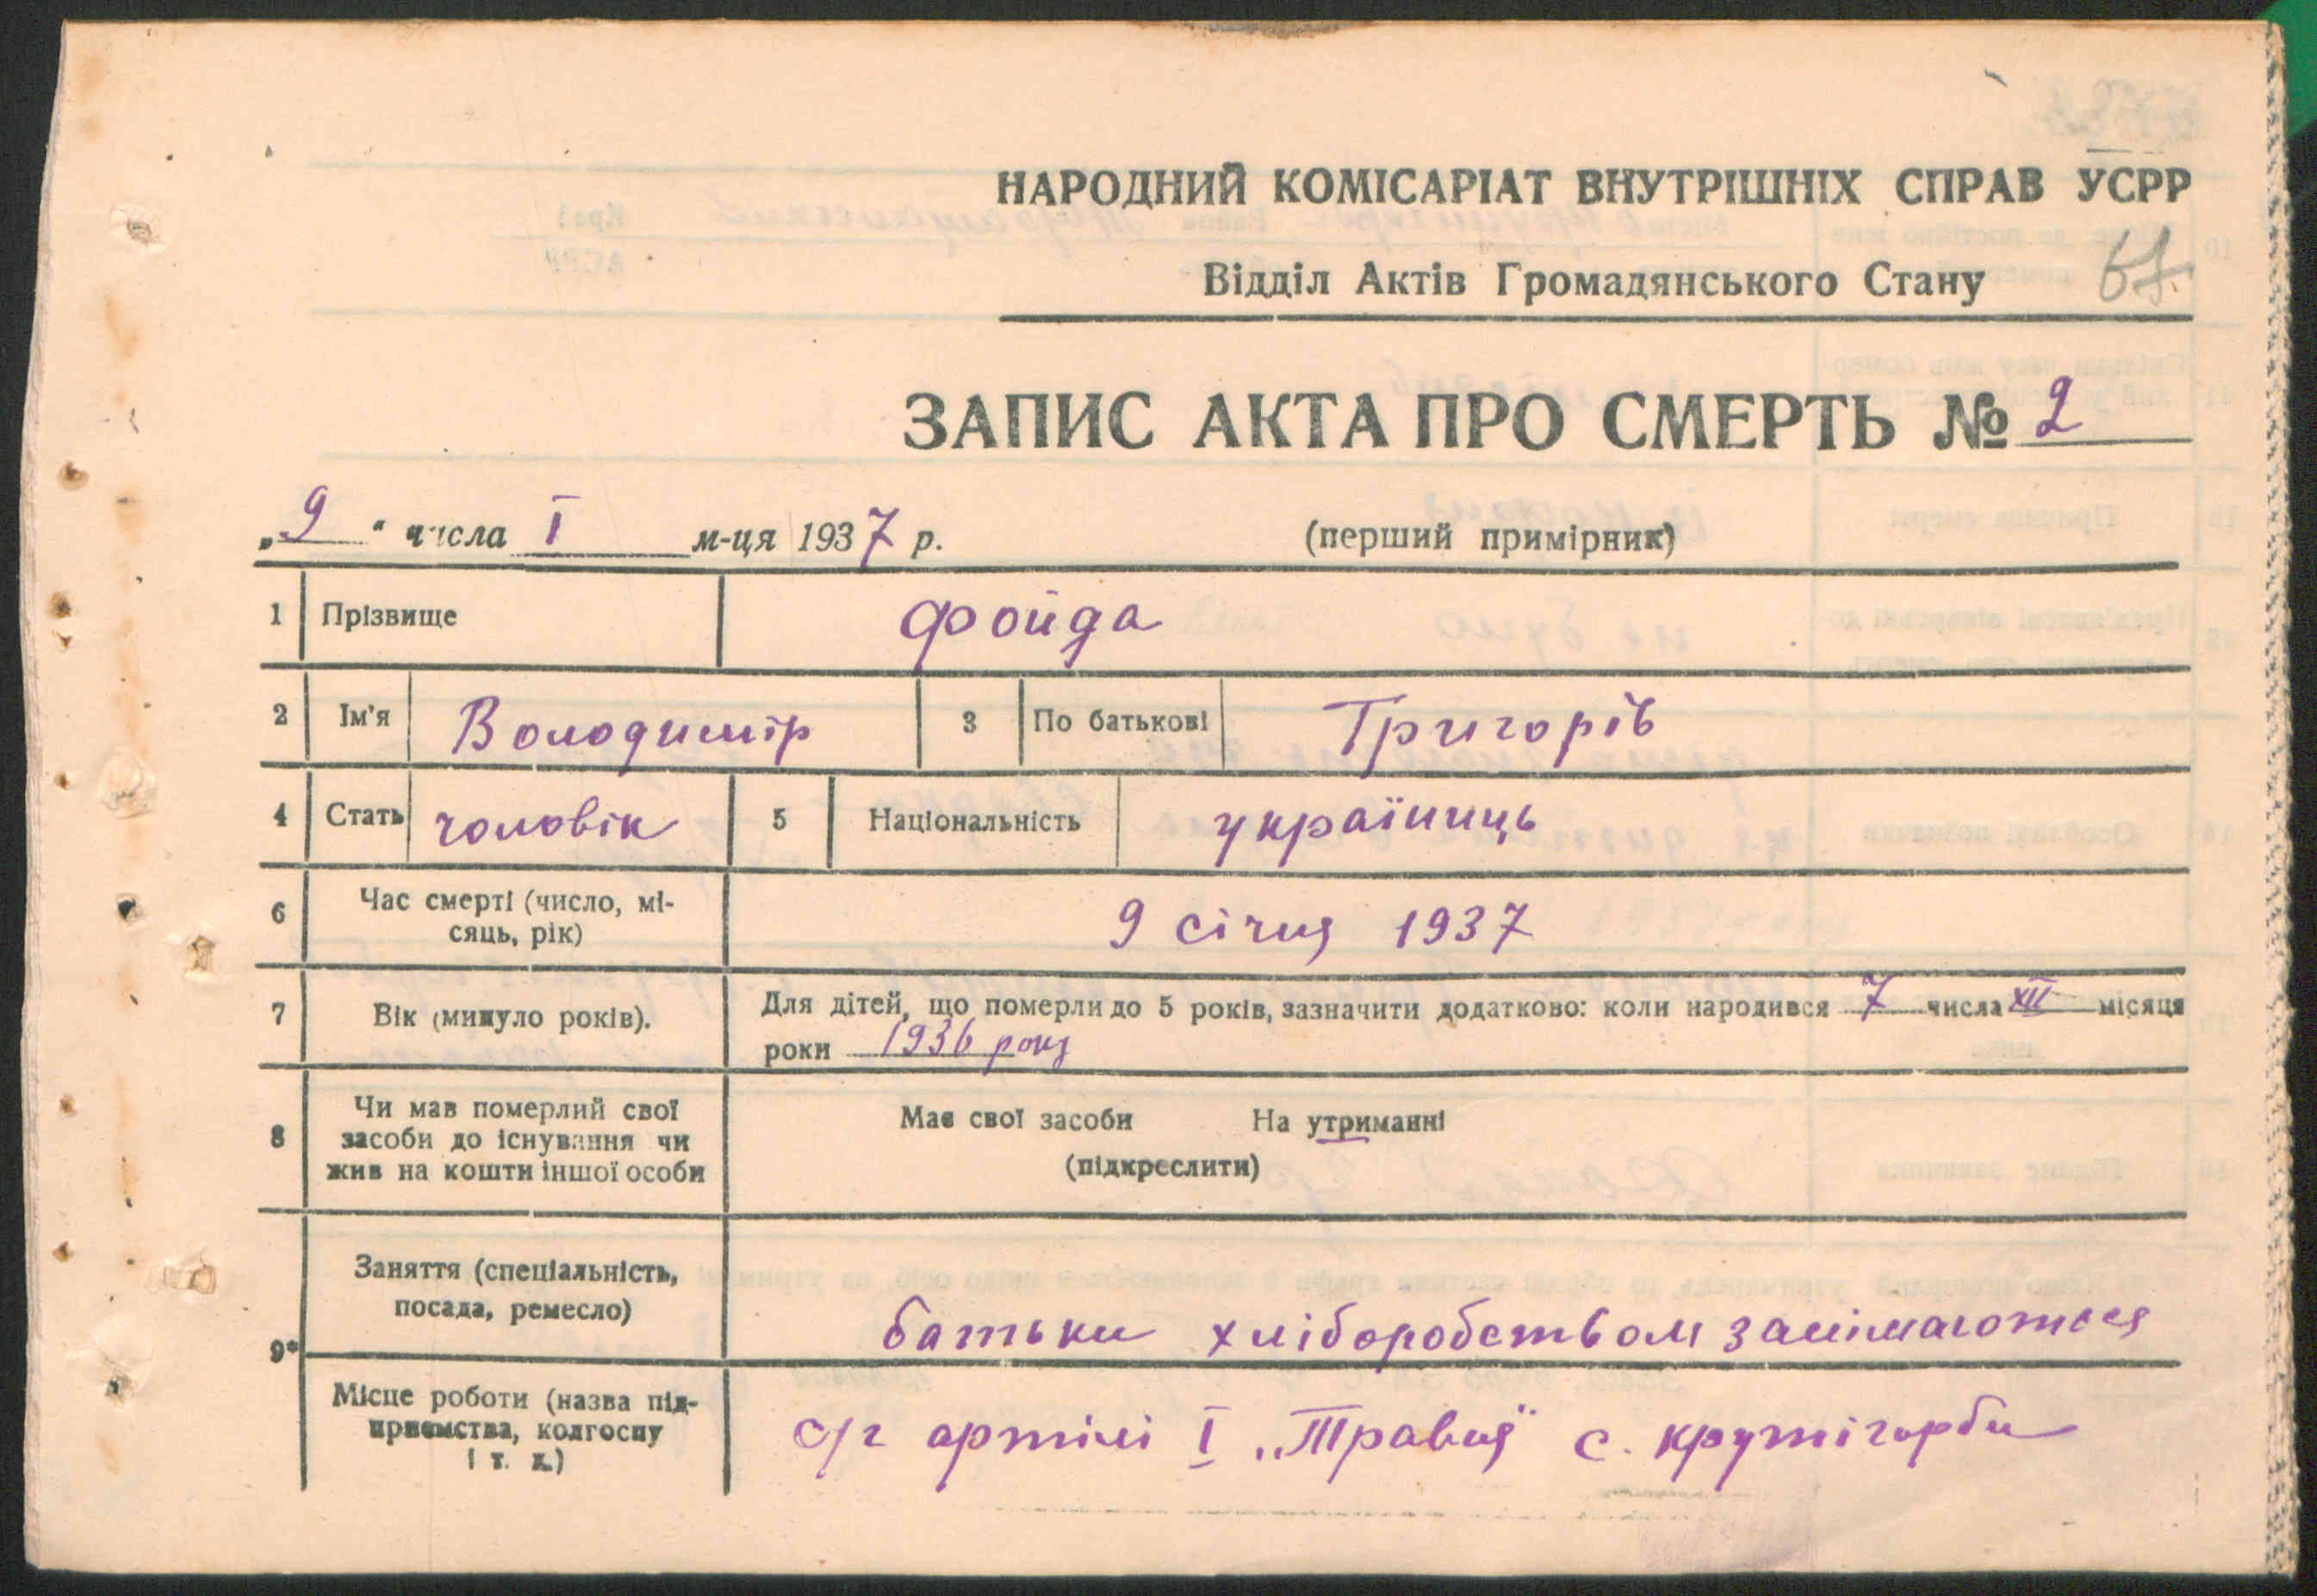 НАРОДНИЙ КОМІСАРІАТ ВНУТРІШНІХ СПРАВ УСРР
Відділ Актів Громадянського Стану
ЗАПИС АКТА ПРО СМЕРТЬ № 2
„9“ числа I м-ця 1937 р. (перший примірник)
1 Прізвище Фойда
2 Ім'я Володимір 3 По батькові Григорів
4 Стать чоловік 5 Національність україниць
6 Час смерті (число, мі-
сяць, рік) 9 січня 1937
7 Вік (минуло років). Для дітей, що померли до 5 років, зазначити додатково: коли народився 7 числа XII місяця
роки 1936 року
8 Чи мав померлий свої
засоби до існування чи
жив на кошти іншої особи
Має свої засоби На утриманні
(підкреслити)
9* Заняття (спеціальність,
посада, ремесло) батьки хліборобством занімаються
Місце роботи (назва під-
приємства, колгоспу
і т. д.) с/г артілі I „Травня" с. крутігорби